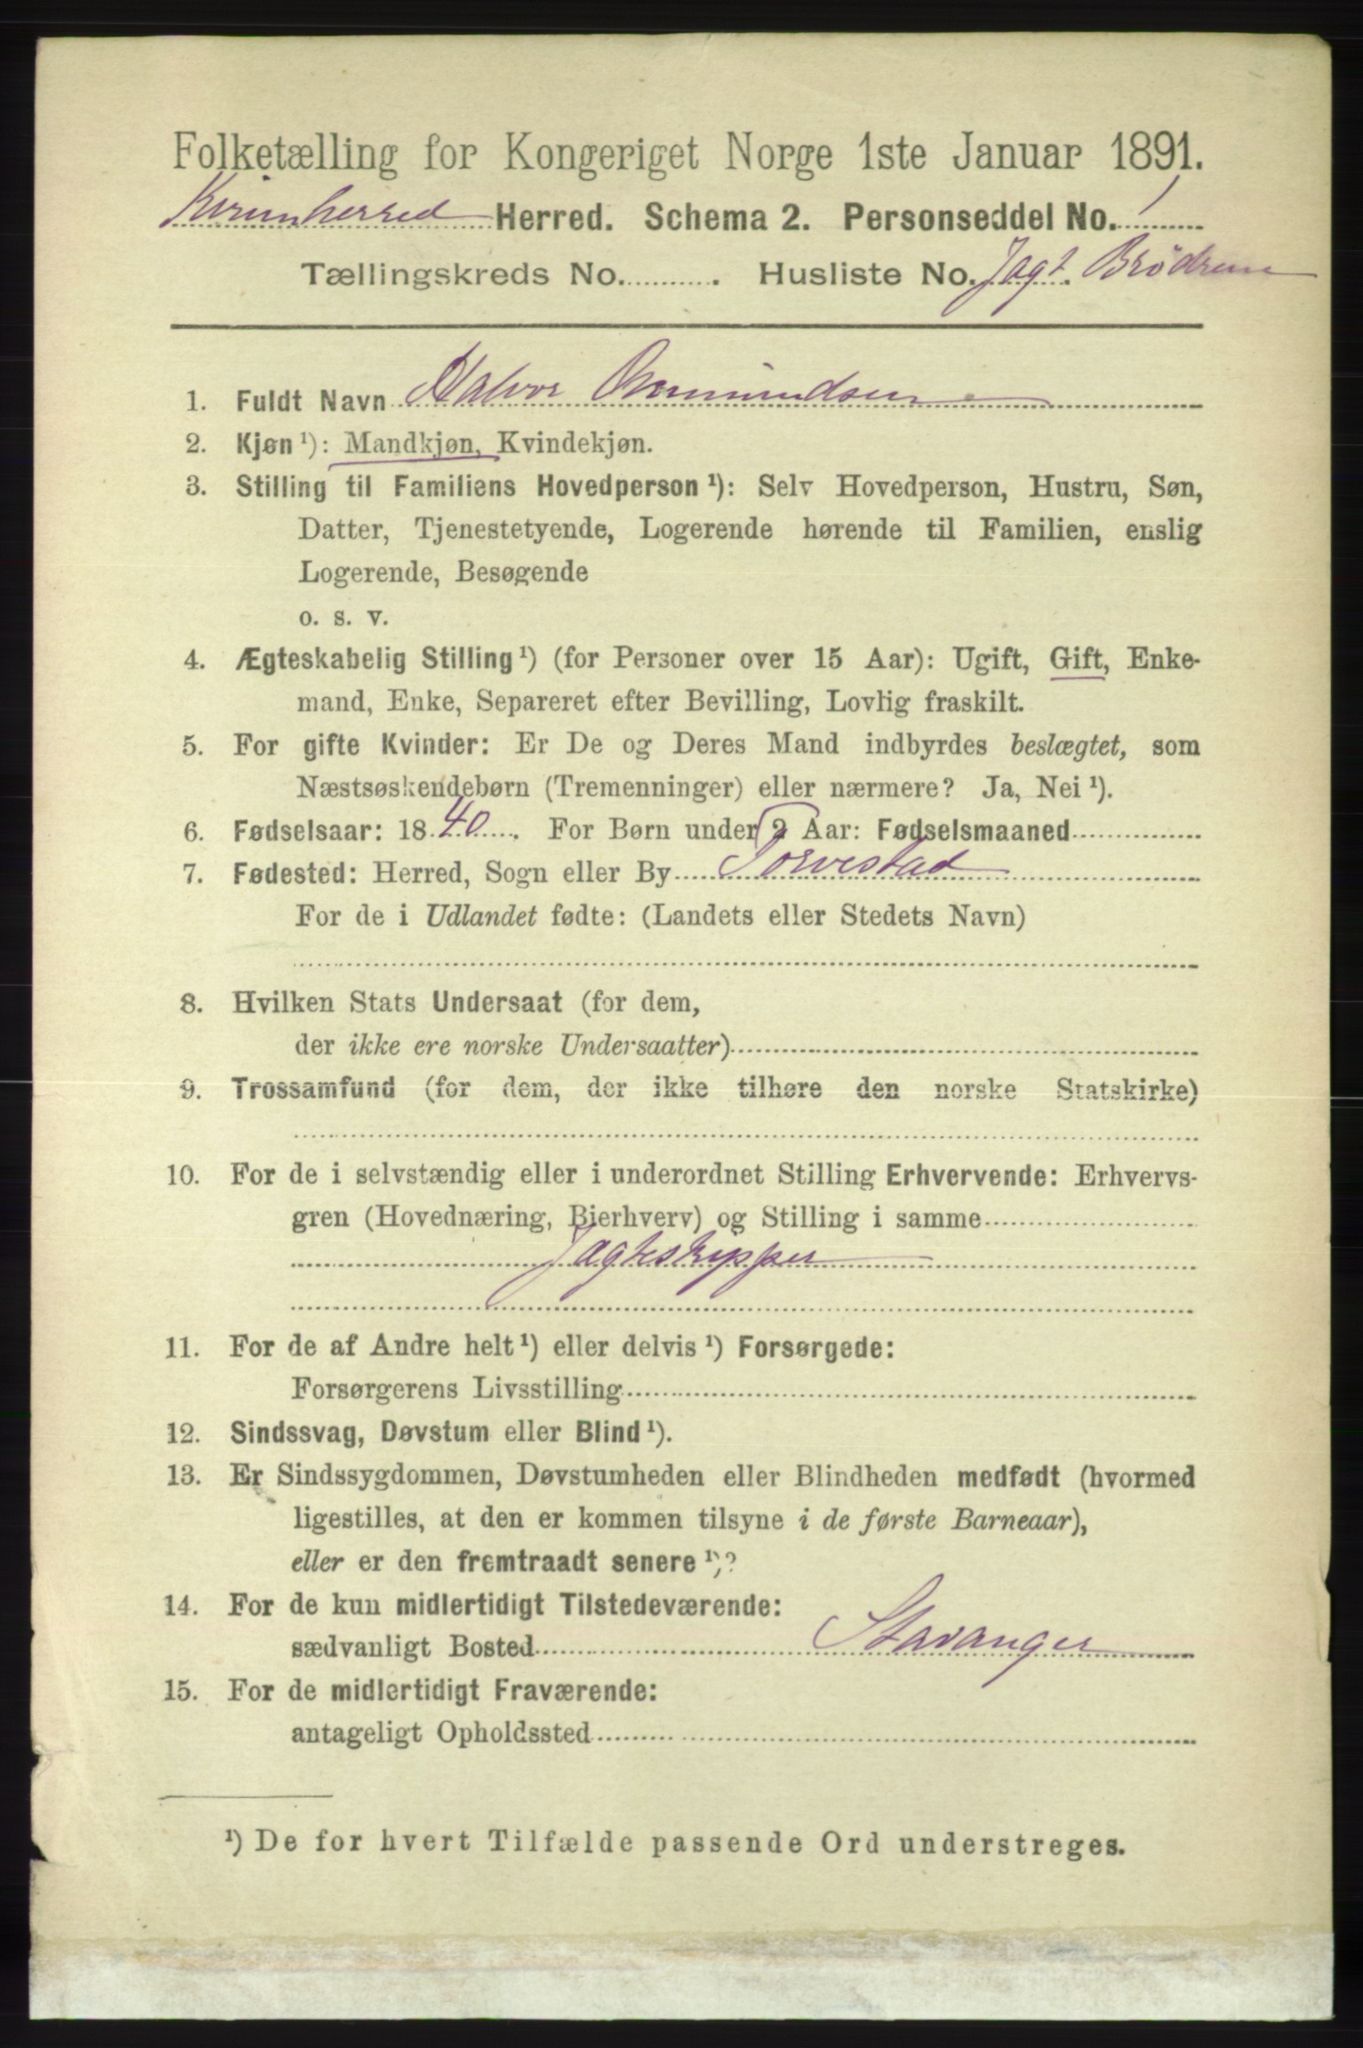 Folketælling for Kongeriget Norge 1ste Januar 1891.
Kvinnherred Herred. Schema 2. Personseddel No. 1
Tællingskreds No. . Husliste No. Jagt. Brödrene
1. Fuldt Navn Halvor Osmundsen
2. Kjøn ¹): Mandkjøn, Kvindekjøn.
3. Stilling til Familiens Hovedperson ¹): Selv Hovedperson, Hustru, Søn,
Datter, Tjenestetyende, Logerende hørende til Familien, enslig
Logerende, Besøgende
o. s. v.
4. Ægteskabelig Stilling ¹) (for Personer over 15 Aar): Ugift, Gift, Enke-
mand, Enke, Separeret efter Bevilling, Lovlig fraskilt.
5. For gifte Kvinder: Er De og Deres Mand indbyrdes beslægtet, som
Næstsøskendebørn (Tremenninger) eller nærmere? Ja, Nei ¹).
6. Fødselsaar: 1840. For Børn under 2 Aar: Fødselsmaaned
7. Fødested: Herred, Sogn eller By Torvestad
For de i Udlandet fødte: (Landets eller Stedets Navn)
8. Hvilken Stats Undersaat (for dem,
der ikke ere norske Undersaatter)
9. Trossamfund (for dem, der ikke tilhøre den norske Statskirke)
10. For de i selvstændig eller i underordnet Stilling Erhvervende: Erhvervs-
gren (Hovednæring, Bierhverv) og Stilling i samme
Jagteskipper
11. For de af Andre helt ¹) eller delvis ¹) Forsørgede:
Forsørgerens Livsstilling
12. Sindssvag, Døvstum eller Blind ¹).
13. Er Sindssygdommen, Døvstumheden eller Blindheden medfødt (hvormed
ligestilles, at den er kommen tilsyne i de første Barneaar),
eller er den fremtraadt senere ¹)?
14. For de kun midlertidigt Tilstedeværende:
sædvanligt Bosted Stavanger
15. For de midlertidigt Fraværende:
antageligt Opholdssted
¹) De for hvert Tilfælde passende Ord understreges.